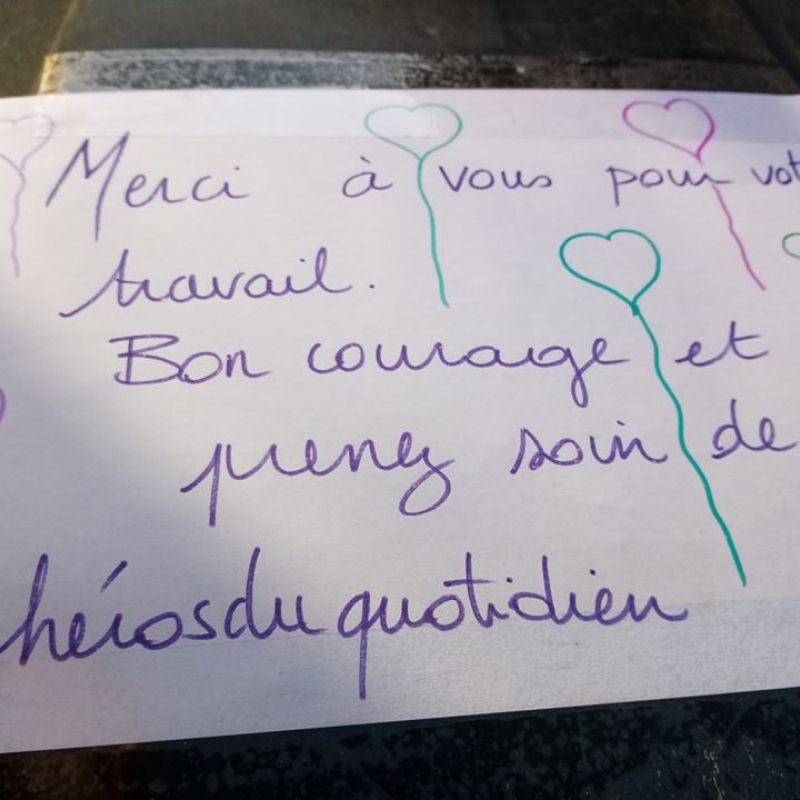 Merci à vous pour vot
travail.
Bon courage et
prenez soin de
hérosduquotidien